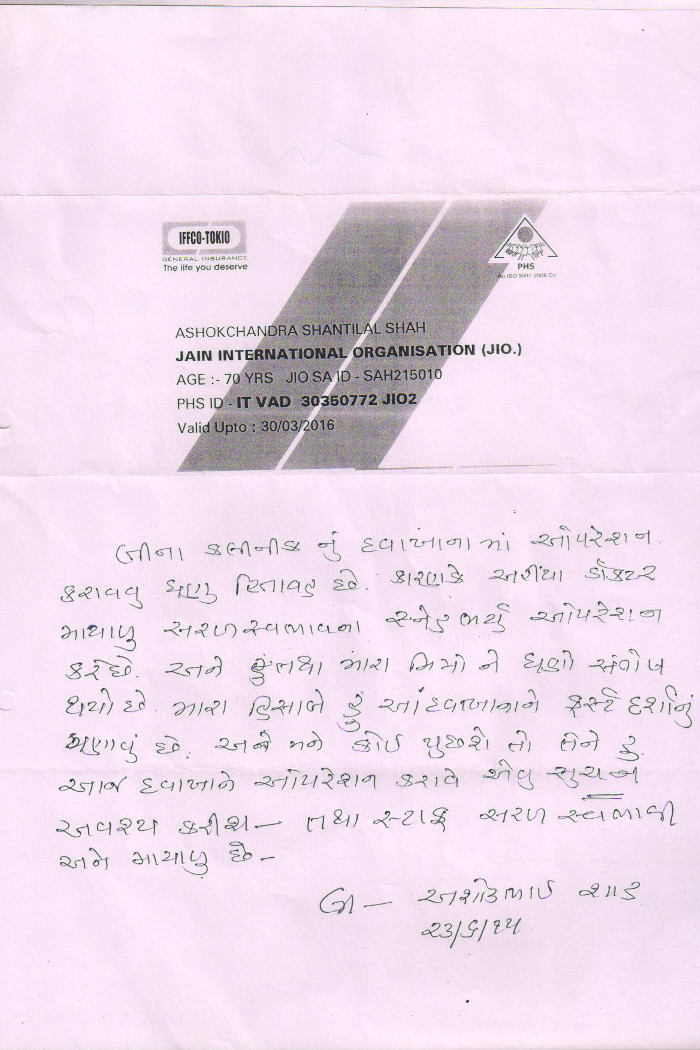 IFFCO-TOKIO
GENERAL INSURANCE
The life you deserve
PHS
An ISO 9001 2008 Co.
ASHOKCHANDRA SHANTILAL SHAH
JAIN INTERNATIONAL ORGANISATION (JIO.)
AGE :- 70 YRS JIO SA ID - SAH215010
PHS ID - IT VAD 30350772 JIO2
Valid Upto : 30/03/2016
કલીનીક નું દવાખાના માં ઓપરેશન
કરાવવુ ઘણુ હિતાવહ છે. કારણકે અહીંયા ડૉક્ટર
માયાળુ સરળ સ્વભાવના સ્નેહ ભર્યુ ઓપરેશન
કરે છે. અને હું તથા મારા મિત્રો ને ઘણો સંતોષ
થયો છે. મારા હિસાબે હું આ દવાખાનાને ફર્સ્ટ દર્જાનું
ગણાવું છે. અને મને કોઈ પુછશે તો તેને હું
આજ દવાખાને ઓપરેશન કરાવે એવુ સુચન
અવશ્ય કરીશ - તથા સ્ટાફ સરળ સ્વભાવી
અને માયાળુ છે -
લી - અશોકભાઈ શાહ
૨૩/૬/૧૫